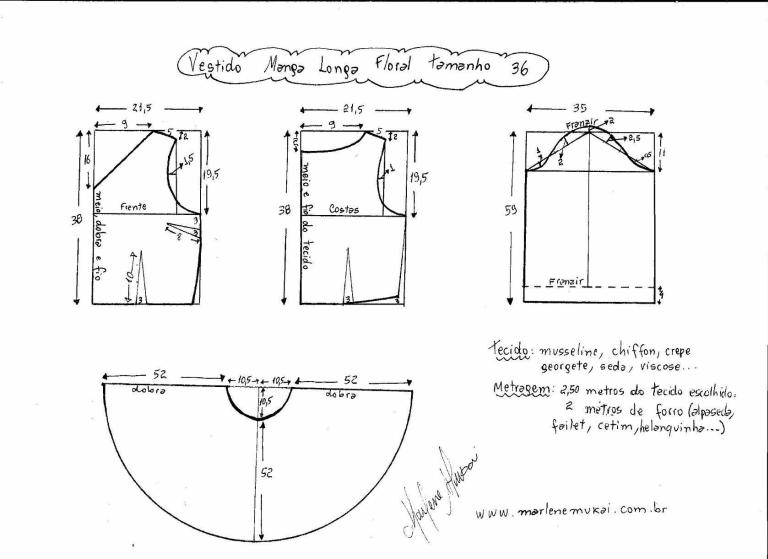 Vestido Manga Longa Floral tamanho 36
21,5
9
5
2
16
1,5
19,5
38
meio, dobra e fio
Frente
3
2
10
3
21,5
9
5
2
1
19,5
38
meio e fio do tecido
Costas
3
35
Franzir
2
1
2
2,5
11
59
Franzir
4
52
10,5
10,5
52
dobra
dobra
10,5
52
tecido: musseline, chiffon, crepe
georgete, seda, viscose...
Metragem: 2,50 metros do tecido escolhido.
2 metros de forro (alpaseda,
failet, cetim, helanquinha...)
Marlene Mukai
www.marlenemukai.com.br